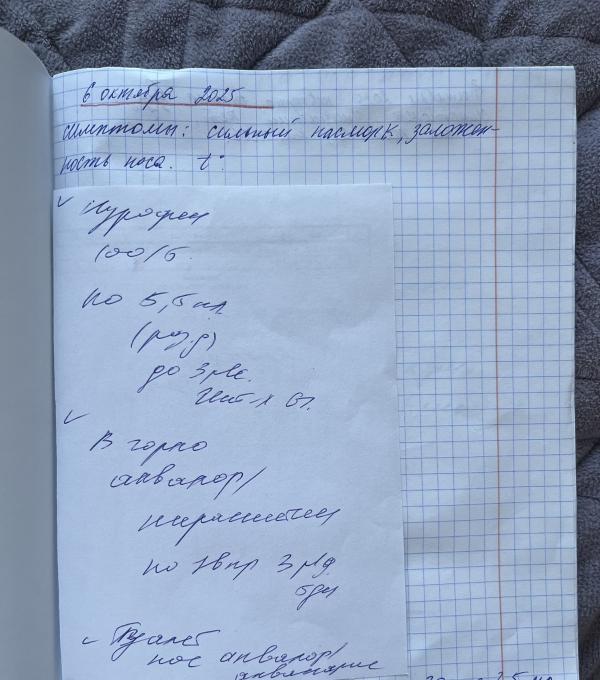 6 октября 2025
Симптомы: сильный насморк, заложен-
ность носа. t°
Нурофен
100/5
по 5,5 мл
(раз.д)
до 3 р/с.
В горло
аквалор/
мирамистин
по 1 впр 3 р/д
5дн
Туалет
нос аквалор/
аквамарис